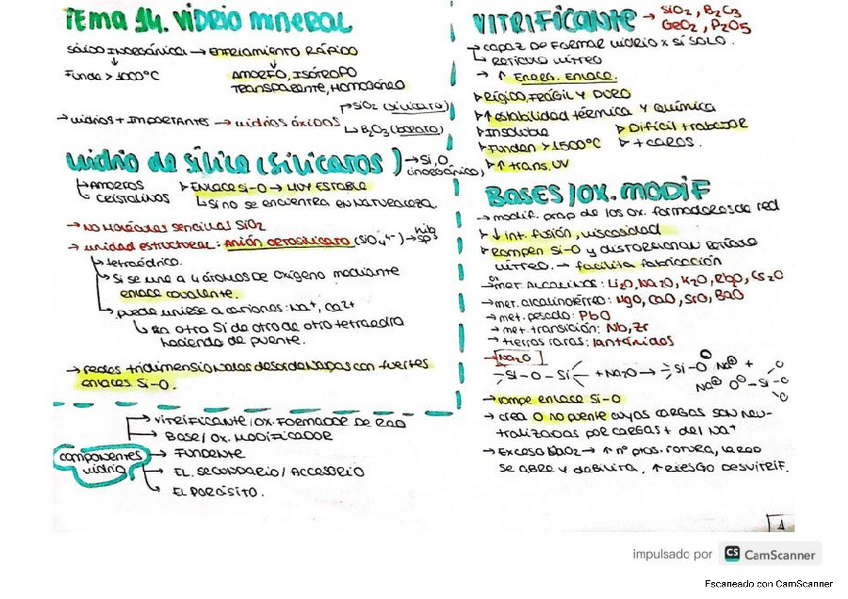 TEMA 14. VIDRIO MINERAL
SÓLIDO INORGÁNICA → ENFRIAMIENTO RÁPIDO
Funde > 1000°C
AMORFO, ISÓTROPO
TRANSPARENTE, HOMOGÉNEO
→ vidrios + IMPORTANTES → vidrios óxidos
SiO2 (silicato)
B2O3 (borato)
vidrio de sílice (silicatos) → Si, O
(inorgánico)
AMORFOS
CRISTALINOS
ENLACE Si-O → MUY ESTABLE
Si no se encuentra EN NATURALEZA
→ NO moléculas sencillas SiO2
→ unidad estructural: anión ortosilicato (SiO4 4-) → hib sp3
tetraédrico.
Si se une a 4 átomos de oxígeno mediante
enlace covalente.
puede unirse a cationes: Na+, Ca2+
en otra Si de otro de otro tetraedro
haciendo de puente.
→ redes tridimensionales desordenadas con fuertes
enlaces Si-O.
componentes
vidrio
VITRIFICANTE / OX. FORMADOR DE RED
BASE / OX. MODIFICADOR
FUNDENTE
EL. SECUNDARIO / ACCESORIO
EL. PARÓSITO.
VITRIFICANTE → SiO2, B2O3
GeO2, P2O5
→ capaz de formar vidrio x sí solo.
retículo vítreo
→ ↑ Energ. Enlace.
Rígido, frágil y duro
↑ estabilidad térmica y química
Insoluble
Difícil trabajar
Funden > 1500°C
+ caros.
↑ trans. UV
BASES / OX. MODIF
→ modif. prop de los ox. formadores de red
↓ int. fusión, viscosidad
Rompen Si-O y distorsionan retículo
vítreo. → facilita fabricación
→ met. Alcalinos: Li2O, Na2O, K2O, Rb2O, Cs2O
→ met. alcalinotérreo: MgO, CaO, SrO, BaO
→ met. pesado: PbO
→ met. transición: Nb, Zr
→ tierras raras: lantánidos
→ Na2O
-Si-O-Si- + Na2O → -Si-O Na⊕ + Na⊕ O-Si-O
→ rompe enlace Si-O
→ crea O no puente cuyas cargas son neu-
tralizadas por cargas + del Na+
→ Exceso Na2O → ↑ nº ptos. rotura, la red
se abre y debilita, ↑ riesgo desvitrif.
1
impulsado por CS CamScanner
Escaneado con CamScanner